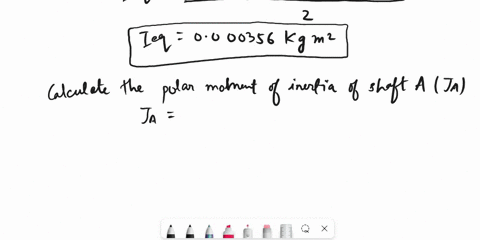 2
Ieq = 0.000356 Kg m²
Calculate the polar moment of inertia of shaft A (JA)
JA =